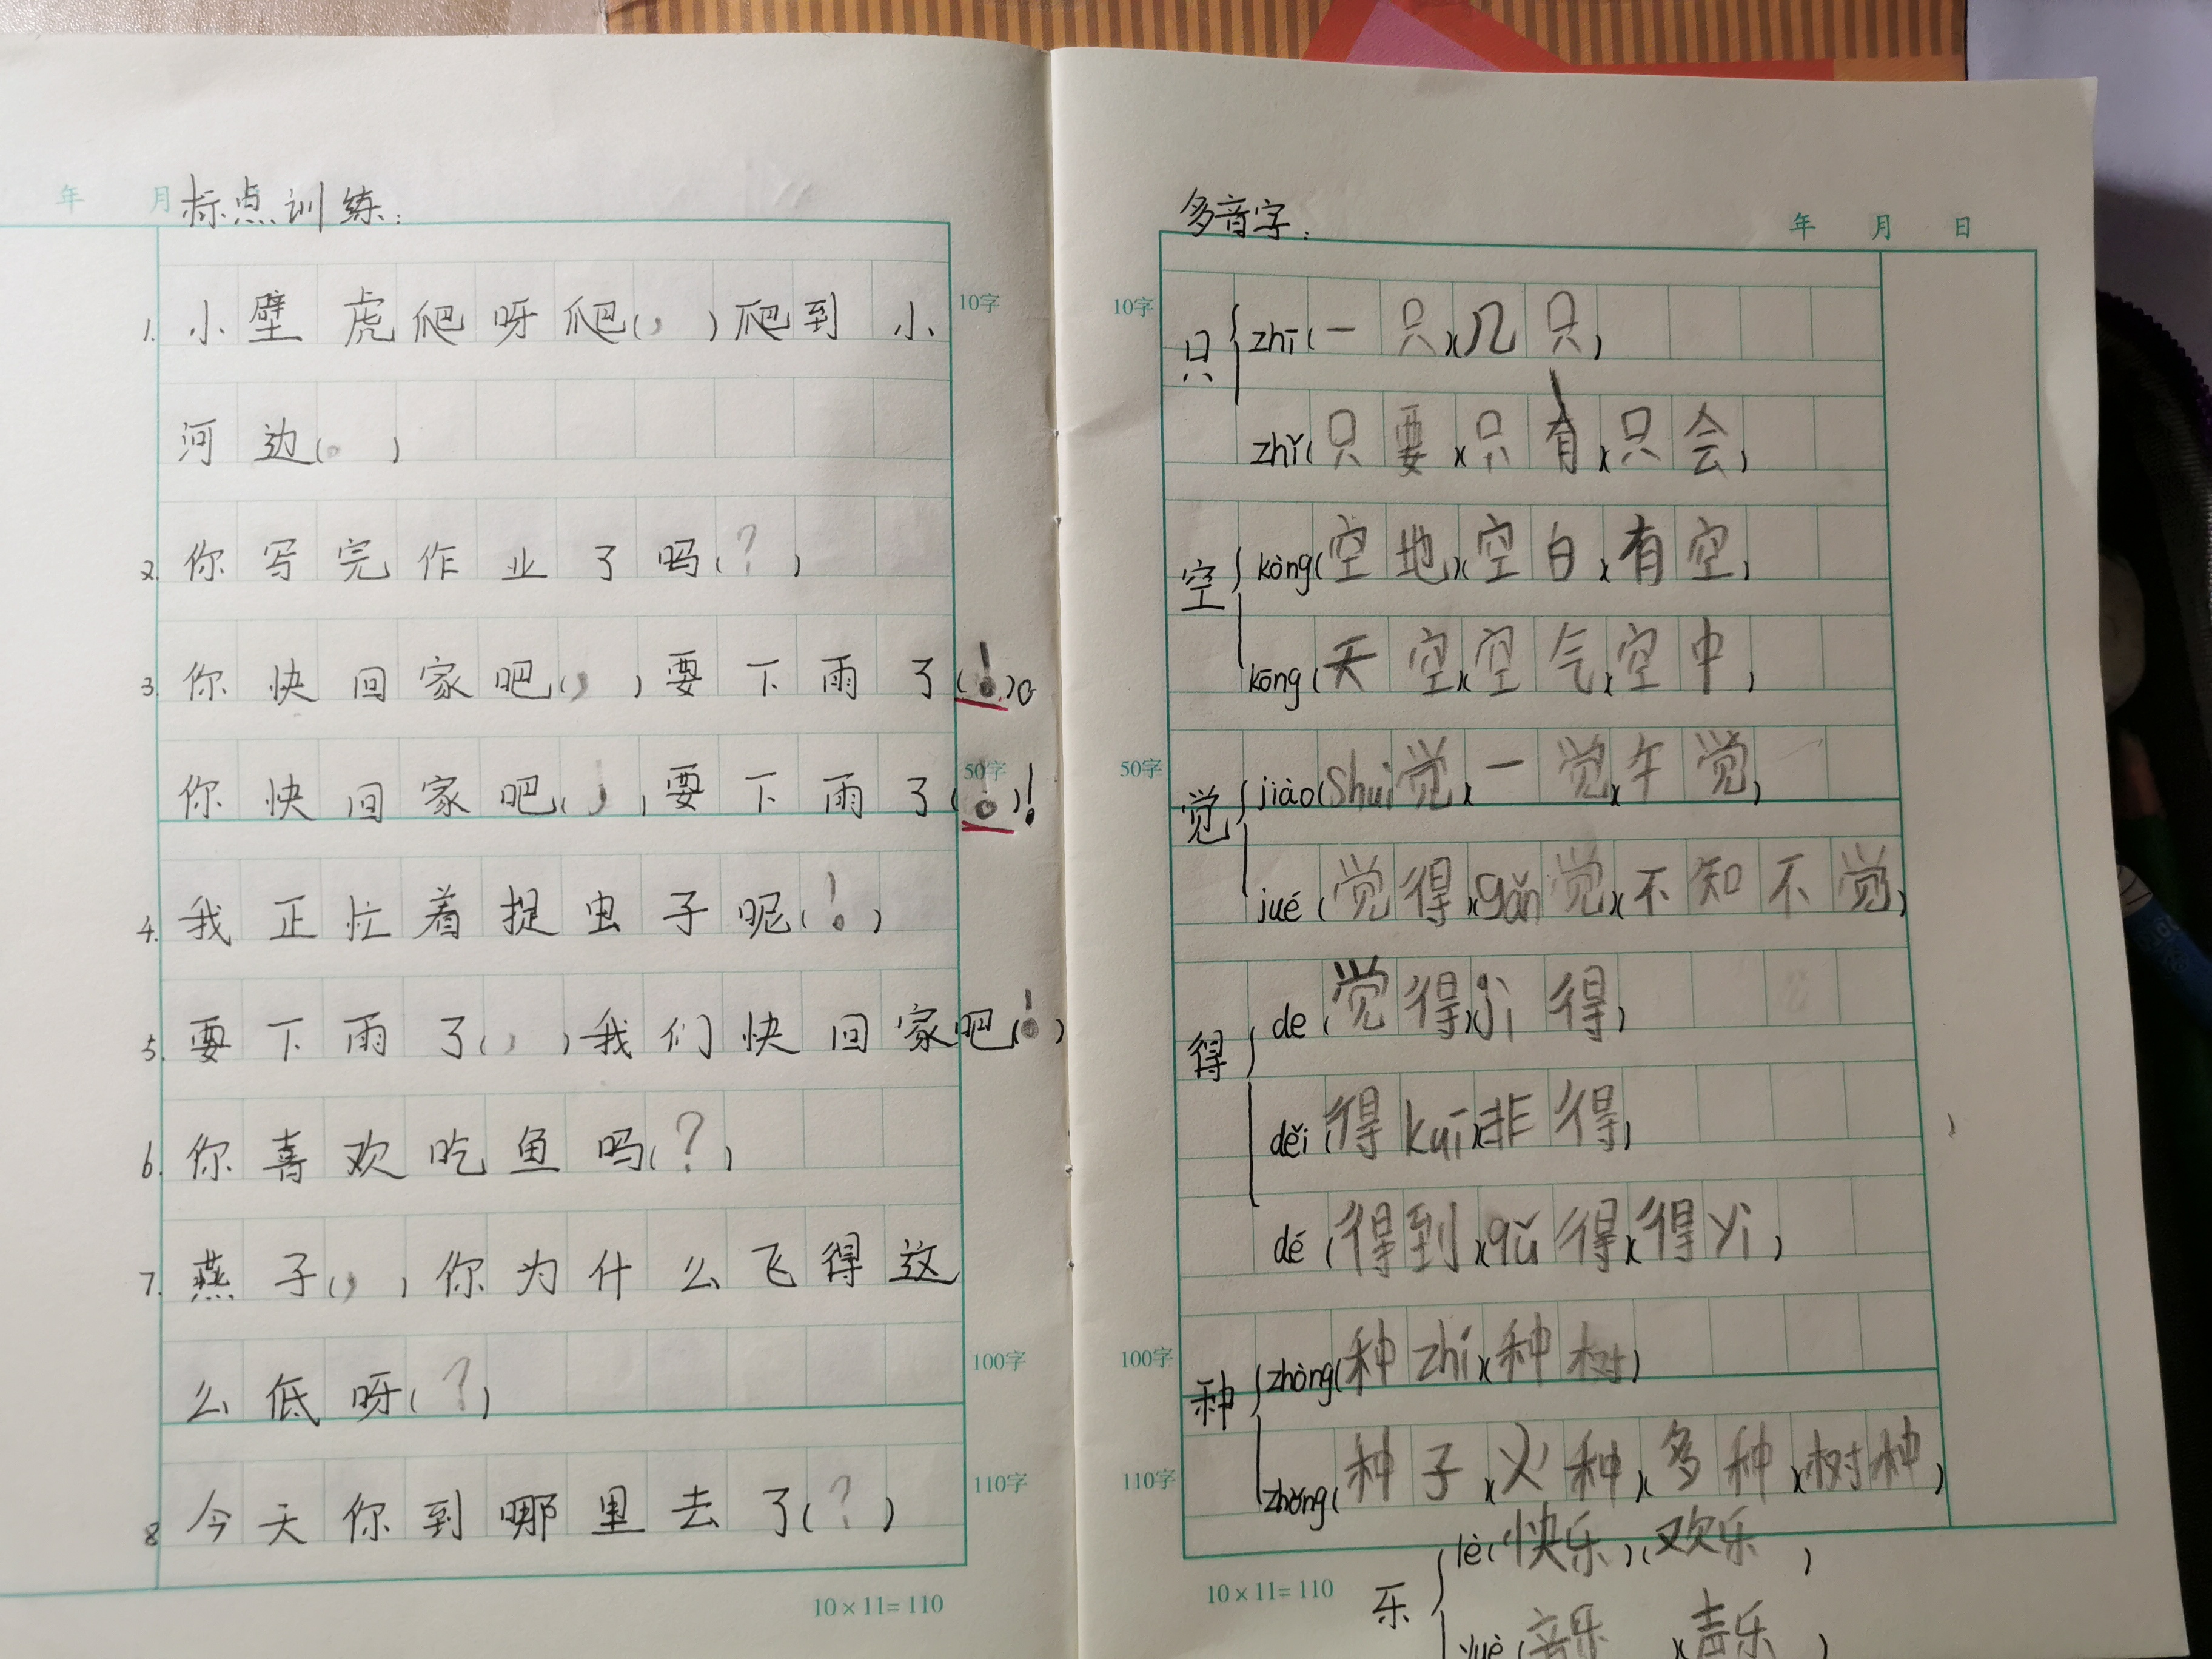 年 月
标点训练:
1. 小壁虎爬呀爬(,)爬到小
10字
河边(。)
2. 你写完作业了吗(?)
3. 你快回家吧(,)要下雨了(!)。
你快回家吧(,)要下雨了(。)!
50字
4. 我正忙着捉虫子呢(!)
5. 要下雨了(,)我们快回家吧(!)
6. 你喜欢吃鱼吗(?)
7. 燕子(,)你为什么飞得这
么低呀(?)
100字
8 今天你到哪里去了(?)
110字
10×11=110
多音字:
年 月 日
10字
只 zhī(一只)(几只)
zhǐ(只要)(只有)(只会)
空 kòng(空地)(空白)(有空)
kōng(天空)(空气)(空中)
50字
觉 jiào(shuì觉)(一觉)(午觉)
jué(觉得)(gǎn觉)(不知不觉)
得 de(觉得)(jì得)
děi(得kuī)(非得)
dé(得到)(qǔ得)(得yì)
100字
种 zhòng(种zhí)(种树)
110字
zhǒng(种子)(火种)(多种)(树种)
10×11=110
乐 lè(快乐)(欢乐)
yuè(音乐)(声乐)